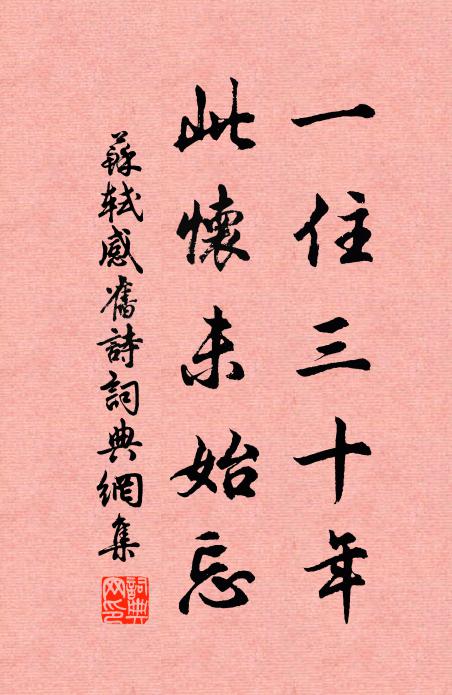 一住三十年
此懷未始忘
蘇軾感舊詩詞典網集
詞典網印